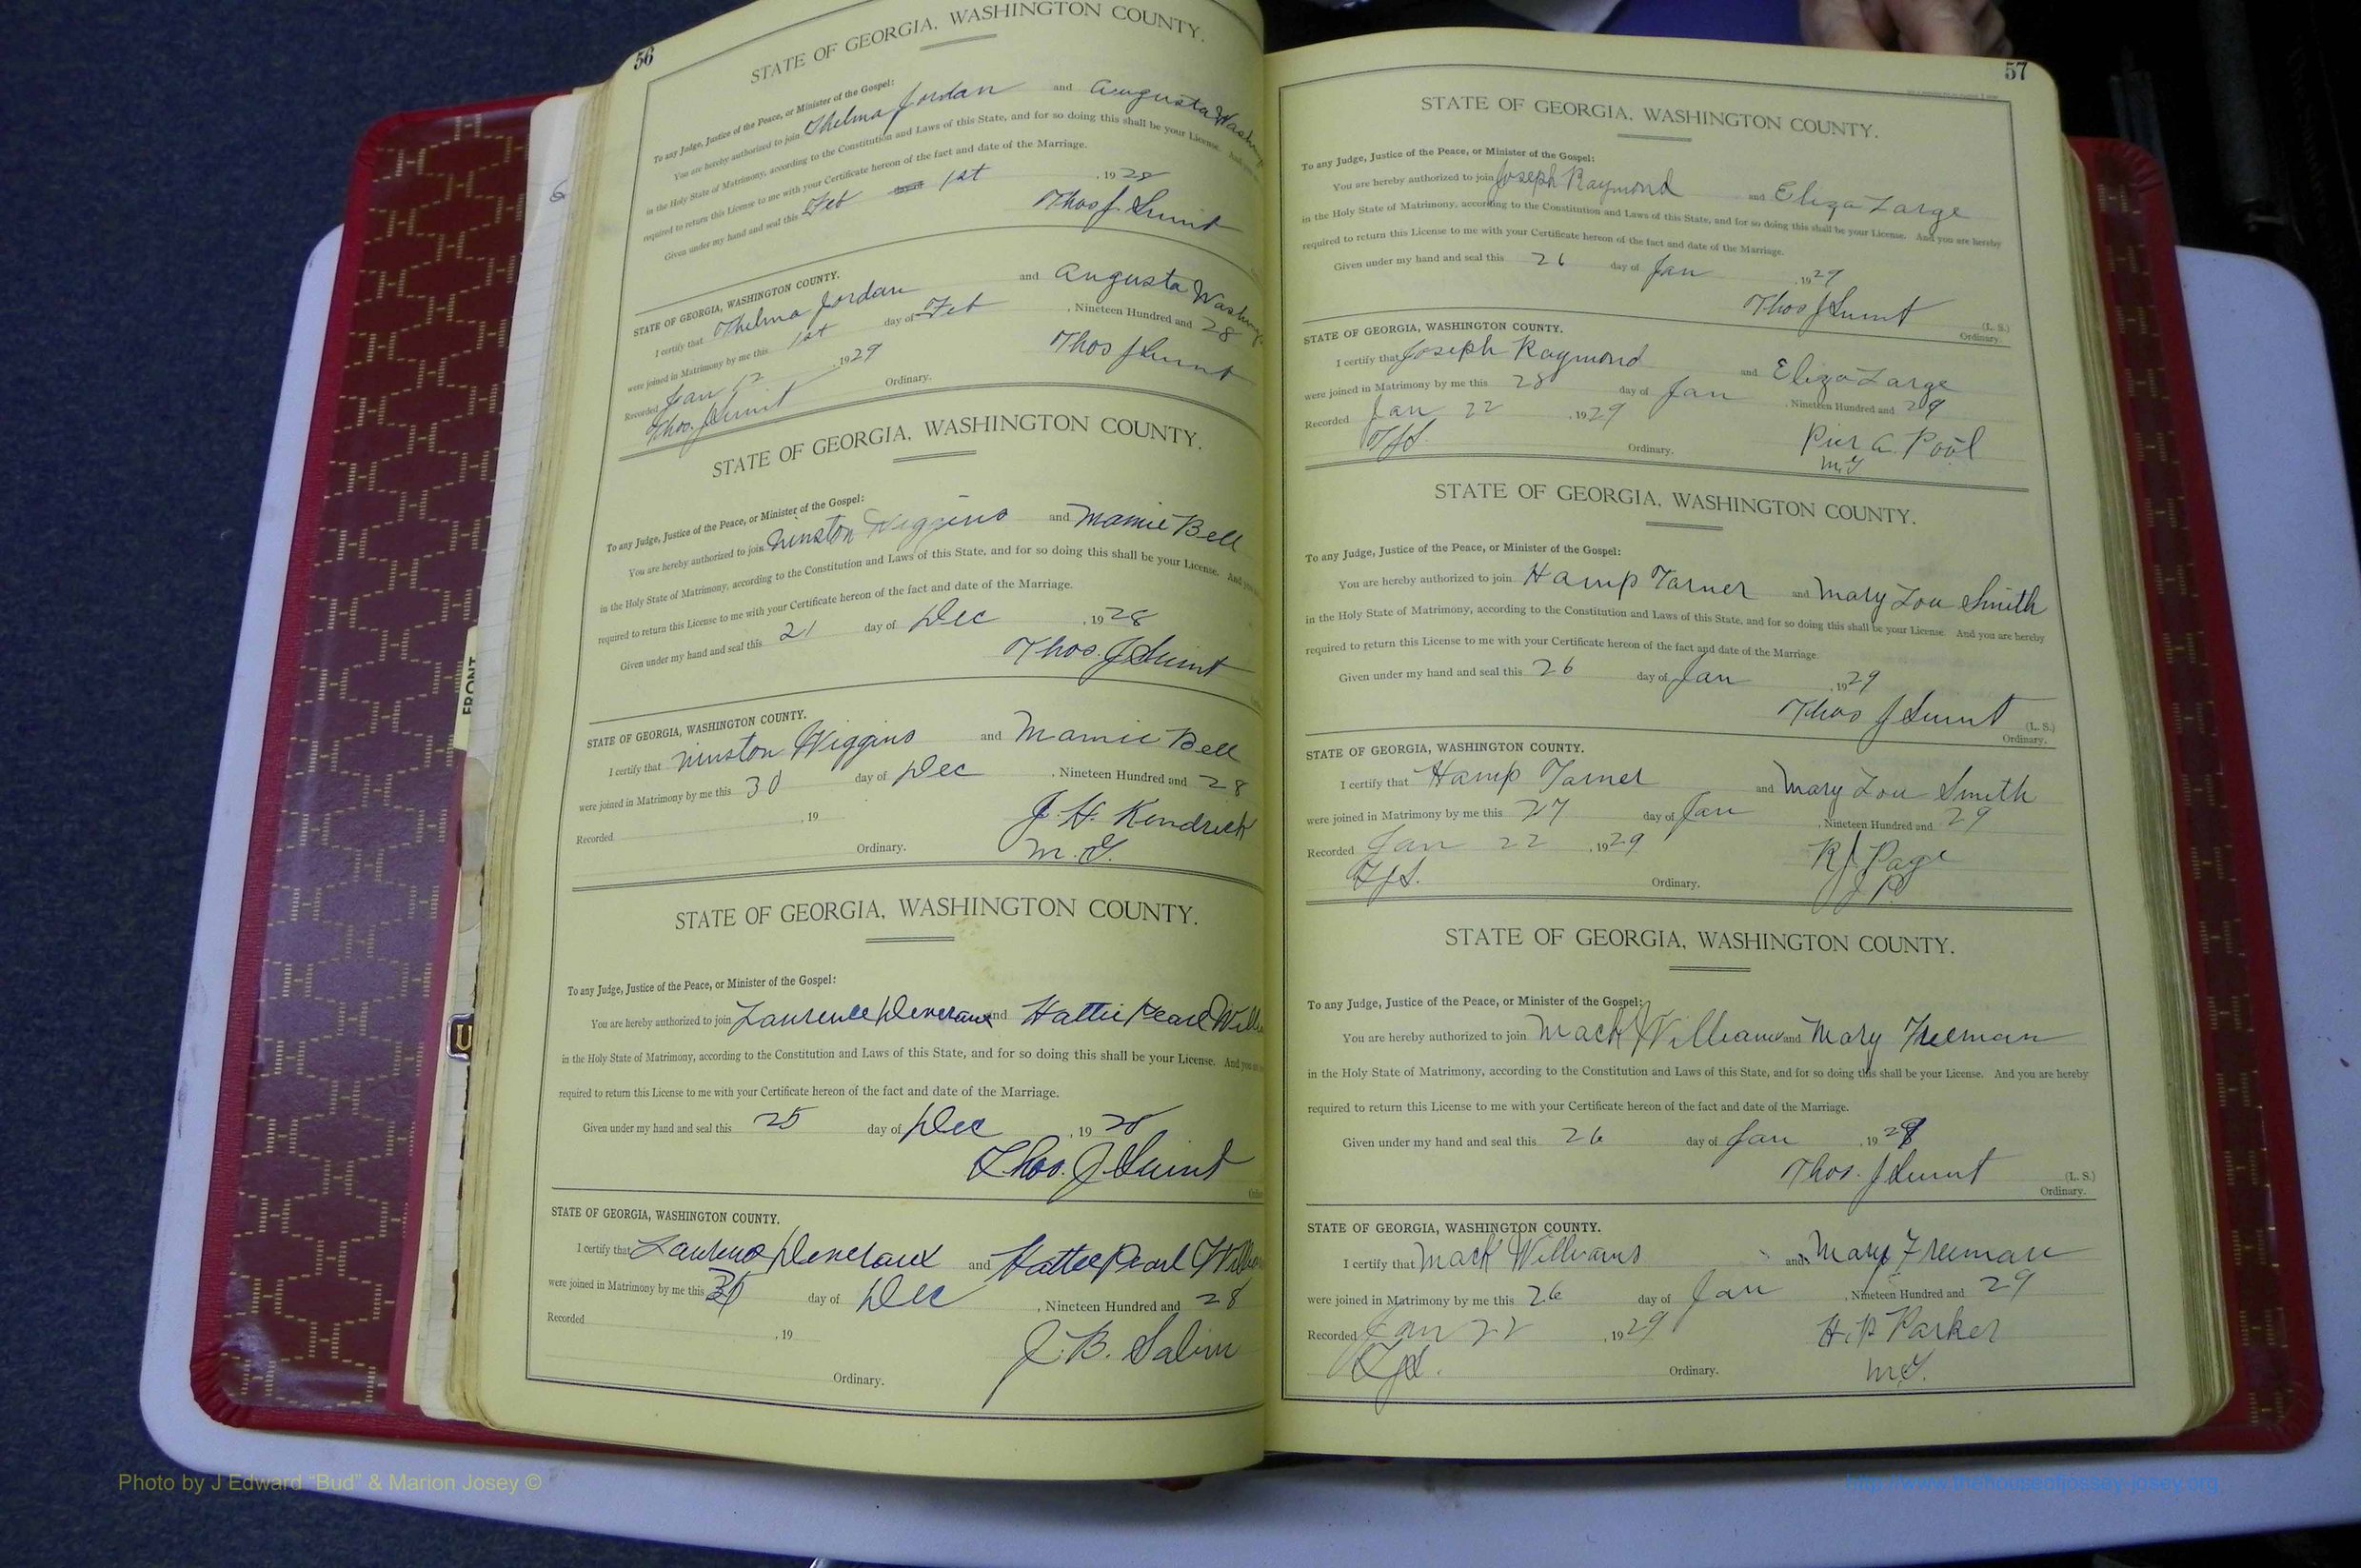 56
STATE OF GEORGIA, WASHINGTON COUNTY.
To any Judge, Justice of the Peace, or Minister of the Gospel:
You are hereby authorized to join Thelma Jordan and Augusta
in the Holy State of Matrimony, according to the Constitution and Laws of this State, and for so doing this shall be your License. And
required to return this License to me with your Certificate hereon of the fact and date of the Marriage.
Given under my hand and seal this Feb 1st , 1928
Thos J
STATE OF GEORGIA, WASHINGTON COUNTY.
I certify that Thelma Jordan and Augusta
were joined in Matrimony by me this 1st day of Feb , Nineteen Hundred and 28
Recorded Jan 12 , 1929 Thos J
Thos. J Ordinary.
STATE OF GEORGIA, WASHINGTON COUNTY.
To any Judge, Justice of the Peace, or Minister of the Gospel:
You are hereby authorized to join Winston Wiggins and Mamie Bell
in the Holy State of Matrimony, according to the Constitution and Laws of this State, and for so doing this shall be your License. And
required to return this License to me with your Certificate hereon of the fact and date of the Marriage.
Given under my hand and seal this 21 day of Dec , 1928
Thos. J
STATE OF GEORGIA, WASHINGTON COUNTY.
I certify that Winston Wiggins and Mamie Bell
were joined in Matrimony by me this 30 day of Dec , Nineteen Hundred and 28
Recorded , 19 J. H. Kendrick
Ordinary. M. G.
STATE OF GEORGIA, WASHINGTON COUNTY.
To any Judge, Justice of the Peace, or Minister of the Gospel:
You are hereby authorized to join Laurence Deveraux and Hattie Pearl
in the Holy State of Matrimony, according to the Constitution and Laws of this State, and for so doing this shall be your License. And
required to return this License to me with your Certificate hereon of the fact and date of the Marriage.
Given under my hand and seal this 25 day of Dec , 19
Thos. J
STATE OF GEORGIA, WASHINGTON COUNTY.
I certify that Laurence Deveraux and Hattie Pearl
were joined in Matrimony by me this day of Dec , Nineteen Hundred and 28
Recorded , 19 J. B.
Ordinary.
FRONT
57
STATE OF GEORGIA, WASHINGTON COUNTY.
To any Judge, Justice of the Peace, or Minister of the Gospel:
You are hereby authorized to join Joseph Raymond and Eliza Large
in the Holy State of Matrimony, according to the Constitution and Laws of this State, and for so doing this shall be your License. And you are hereby
required to return this License to me with your Certificate hereon of the fact and date of the Marriage.
Given under my hand and seal this 26 day of Jan , 1929
Thos J (L. S.)
Ordinary.
STATE OF GEORGIA, WASHINGTON COUNTY.
I certify that Joseph Raymond and Eliza Large
were joined in Matrimony by me this 28 day of Jan , Nineteen Hundred and 29
Recorded Jan 22 , 1929 A. Pool
TJS. Ordinary. M.G
STATE OF GEORGIA, WASHINGTON COUNTY.
To any Judge, Justice of the Peace, or Minister of the Gospel:
You are hereby authorized to join Hamp Tarner and Mary Lou Smith
in the Holy State of Matrimony, according to the Constitution and Laws of this State, and for so doing this shall be your License. And you are hereby
required to return this License to me with your Certificate hereon of the fact and date of the Marriage
Given under my hand and seal this 26 day of Jan , 1929
Thos J (L. S.)
Ordinary.
STATE OF GEORGIA, WASHINGTON COUNTY.
I certify that Hamp Tarner and Mary Lou Smith
were joined in Matrimony by me this 27 day of Jan , Nineteen Hundred and 29
Recorded Jan 22 , 1929 RJ Page
TJS. Ordinary. JP
STATE OF GEORGIA, WASHINGTON COUNTY.
To any Judge, Justice of the Peace, or Minister of the Gospel:
You are hereby authorized to join Mack Williams and Mary Freeman
in the Holy State of Matrimony, according to the Constitution and Laws of this State, and for so doing this shall be your License. And you are hereby
required to return this License to me with your Certificate hereon of the fact and date of the Marriage.
Given under my hand and seal this 26 day of Jan , 1929
Thos. J (L. S.)
Ordinary.
STATE OF GEORGIA, WASHINGTON COUNTY.
I certify that Mack Williams and Mary Freeman
were joined in Matrimony by me this 26 day of Jan , Nineteen Hundred and 29
Recorded Jan 22 , 1929 H. P. Parker
TJS. Ordinary. M.G.
Photo by J Edward “Bud” & Marion Josey ©
http://www.thehouseofjossey-josey.org